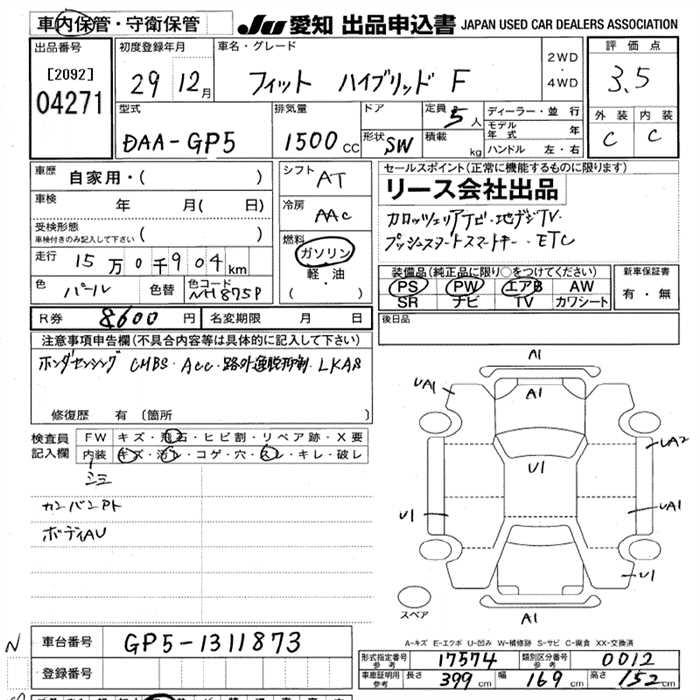 車内保管・守衛保管 JU 愛知 出品申込書 JAPAN USED CAR DEALERS ASSOCIATION
出品番号 [2092] 04271
初度登録年月 29 12月
車名・グレード フィット ハイブリッド F
2WD・4WD
評価点 3.5
外装 C 内装 C
型式 DAA-GP5
排気量 1500cc
ドア 形状 SW
定員 5人
積載 kg
ディーラー・並行
モデル年式 年
ハンドル 左・右
車歴 自家用・( )
車検 年 月( 日)
受検形態 車検付きのみ記入して下さい ( )
走行 15万0千904km
色 パール 色替 色コード NH875P
シフト AT
冷房 AAC
燃料 ガソリン・軽油・( )
セールスポイント(正常に機能するものに限ります)
リース会社出品
カロッツェリアナビ・地デジTV・
プッシュスタートスマートキー・ETC
装備品(純正品に限り○をつけてください)
PS PW エアB AW
SR ナビ TV カワシート
新車保証書 有・無
R券 8600円 名変期限 月 日
後日品
注意事項申告欄(不具合内容等は具体的に記入して下さい)
ホンダセンシング CMBS・ACC・路外逸脱抑制・LKAS
修復歴 有 [箇所 ]
検査員記入欄
FW キズ・飛石・ヒビ割・リペア跡・X要
内装 キズ・汚レ・コゲ・穴・スレ・キレ・破レ
シミ
カンバンアト
ボディAU
A1
UA1
A1
UA2
U1
U1
UA1
U1
A1
スペア
A-キズ E-エクボ U-凹み W-補修跡 S-サビ C-腐食 XX-交換済
N
車台番号 GP5-1311873
登録番号
形式指定番号 参考 17574 類別区分番号 参考 0012
車庫証明用 参考 長さ 399cm 幅 169cm 高さ 152cm